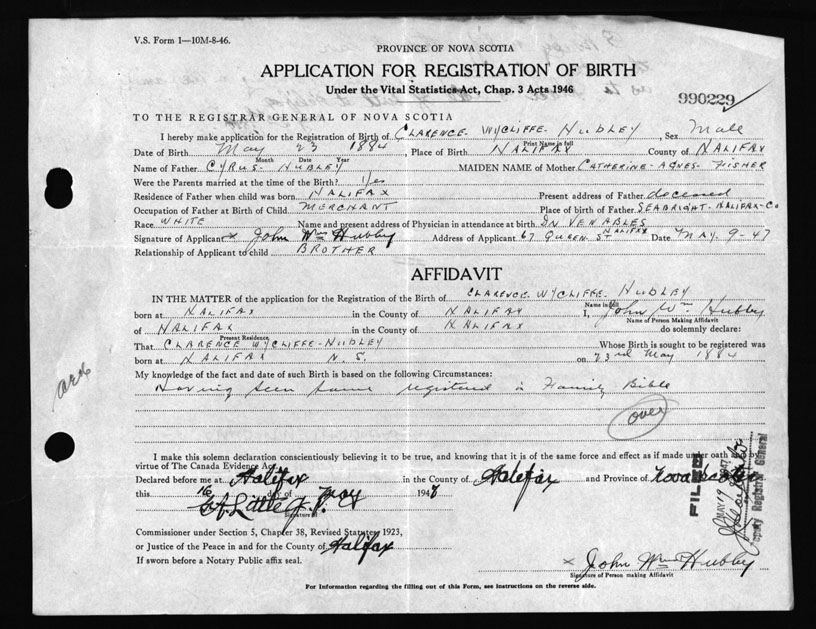 V.S. Form 1—10M-8-46.
PROVINCE OF NOVA SCOTIA
APPLICATION FOR REGISTRATION OF BIRTH
Under the Vital Statistics Act, Chap. 3 Acts 1946
990229
TO THE REGISTRAR GENERAL OF NOVA SCOTIA
I hereby make application for the Registration of Birth of CLARENCE. WYCLIFFE. HUBLEY, Sex Male
Print Name in full
Date of Birth May 23 1884, Place of Birth HALIFAX County of HALIFAX
Month Date Year
Name of Father CYRUS- HUBLEY MAIDEN NAME of Mother CATHERINE-AGNES- FISHER
Were the Parents married at the time of the Birth? Yes
Residence of Father when child was born HALIFAX Present address of Father deceased
Occupation of Father at Birth of Child MERCHANT Place of birth of Father SEABRIGHT-HALIFAX-Co
Race WHITE Name and present address of Physician in attendance at birth VENABLES
Signature of Applicant x John Wm Hubley Address of Applicant 67 QUEEN ST HALIFAX Date MAY 9-47
Relationship of Applicant to child BROTHER
AFFIDAVIT
IN THE MATTER of the application for the Registration of the Birth of CLARENCE. WYCLIFFE. HUBLEY
Name in full
born at HALIFAX in the County of HALIFAX I, John Wm Hubley
Name of Person Making Affidavit
of HALIFAX in the County of HALIFAX do solemnly declare:
Present Residence
That CLARENCE WYCLIFFE-HUBLEY Whose Birth is sought to be registered was
born at HALIFAX N. S. on 23rd May 1884
My knowledge of the fact and date of such Birth is based on the following Circumstances:
Having seen same registered in Family Bible
over
I make this solemn declaration conscientiously believing it to be true, and knowing that it is of the same force and effect as if made under oath and by
virtue of The Canada Evidence Act.
Declared before me at Halifax in the County of Halifax and Province of Nova Scotia
this 16 day of May 1947
G. A. Little J. P.
Signature of
Commissioner under Section 5, Chapter 38, Revised Statutes 1923,
or Justice of the Peace in and for the County of Halifax
If sworn before a Notary Public affix seal.
x John Wm Hubley
Signature of Person making Affidavit
For Information regarding the filling out of this Form, see instructions on the reverse side.
FILED
MAY 19 1947
Deputy Registrar General